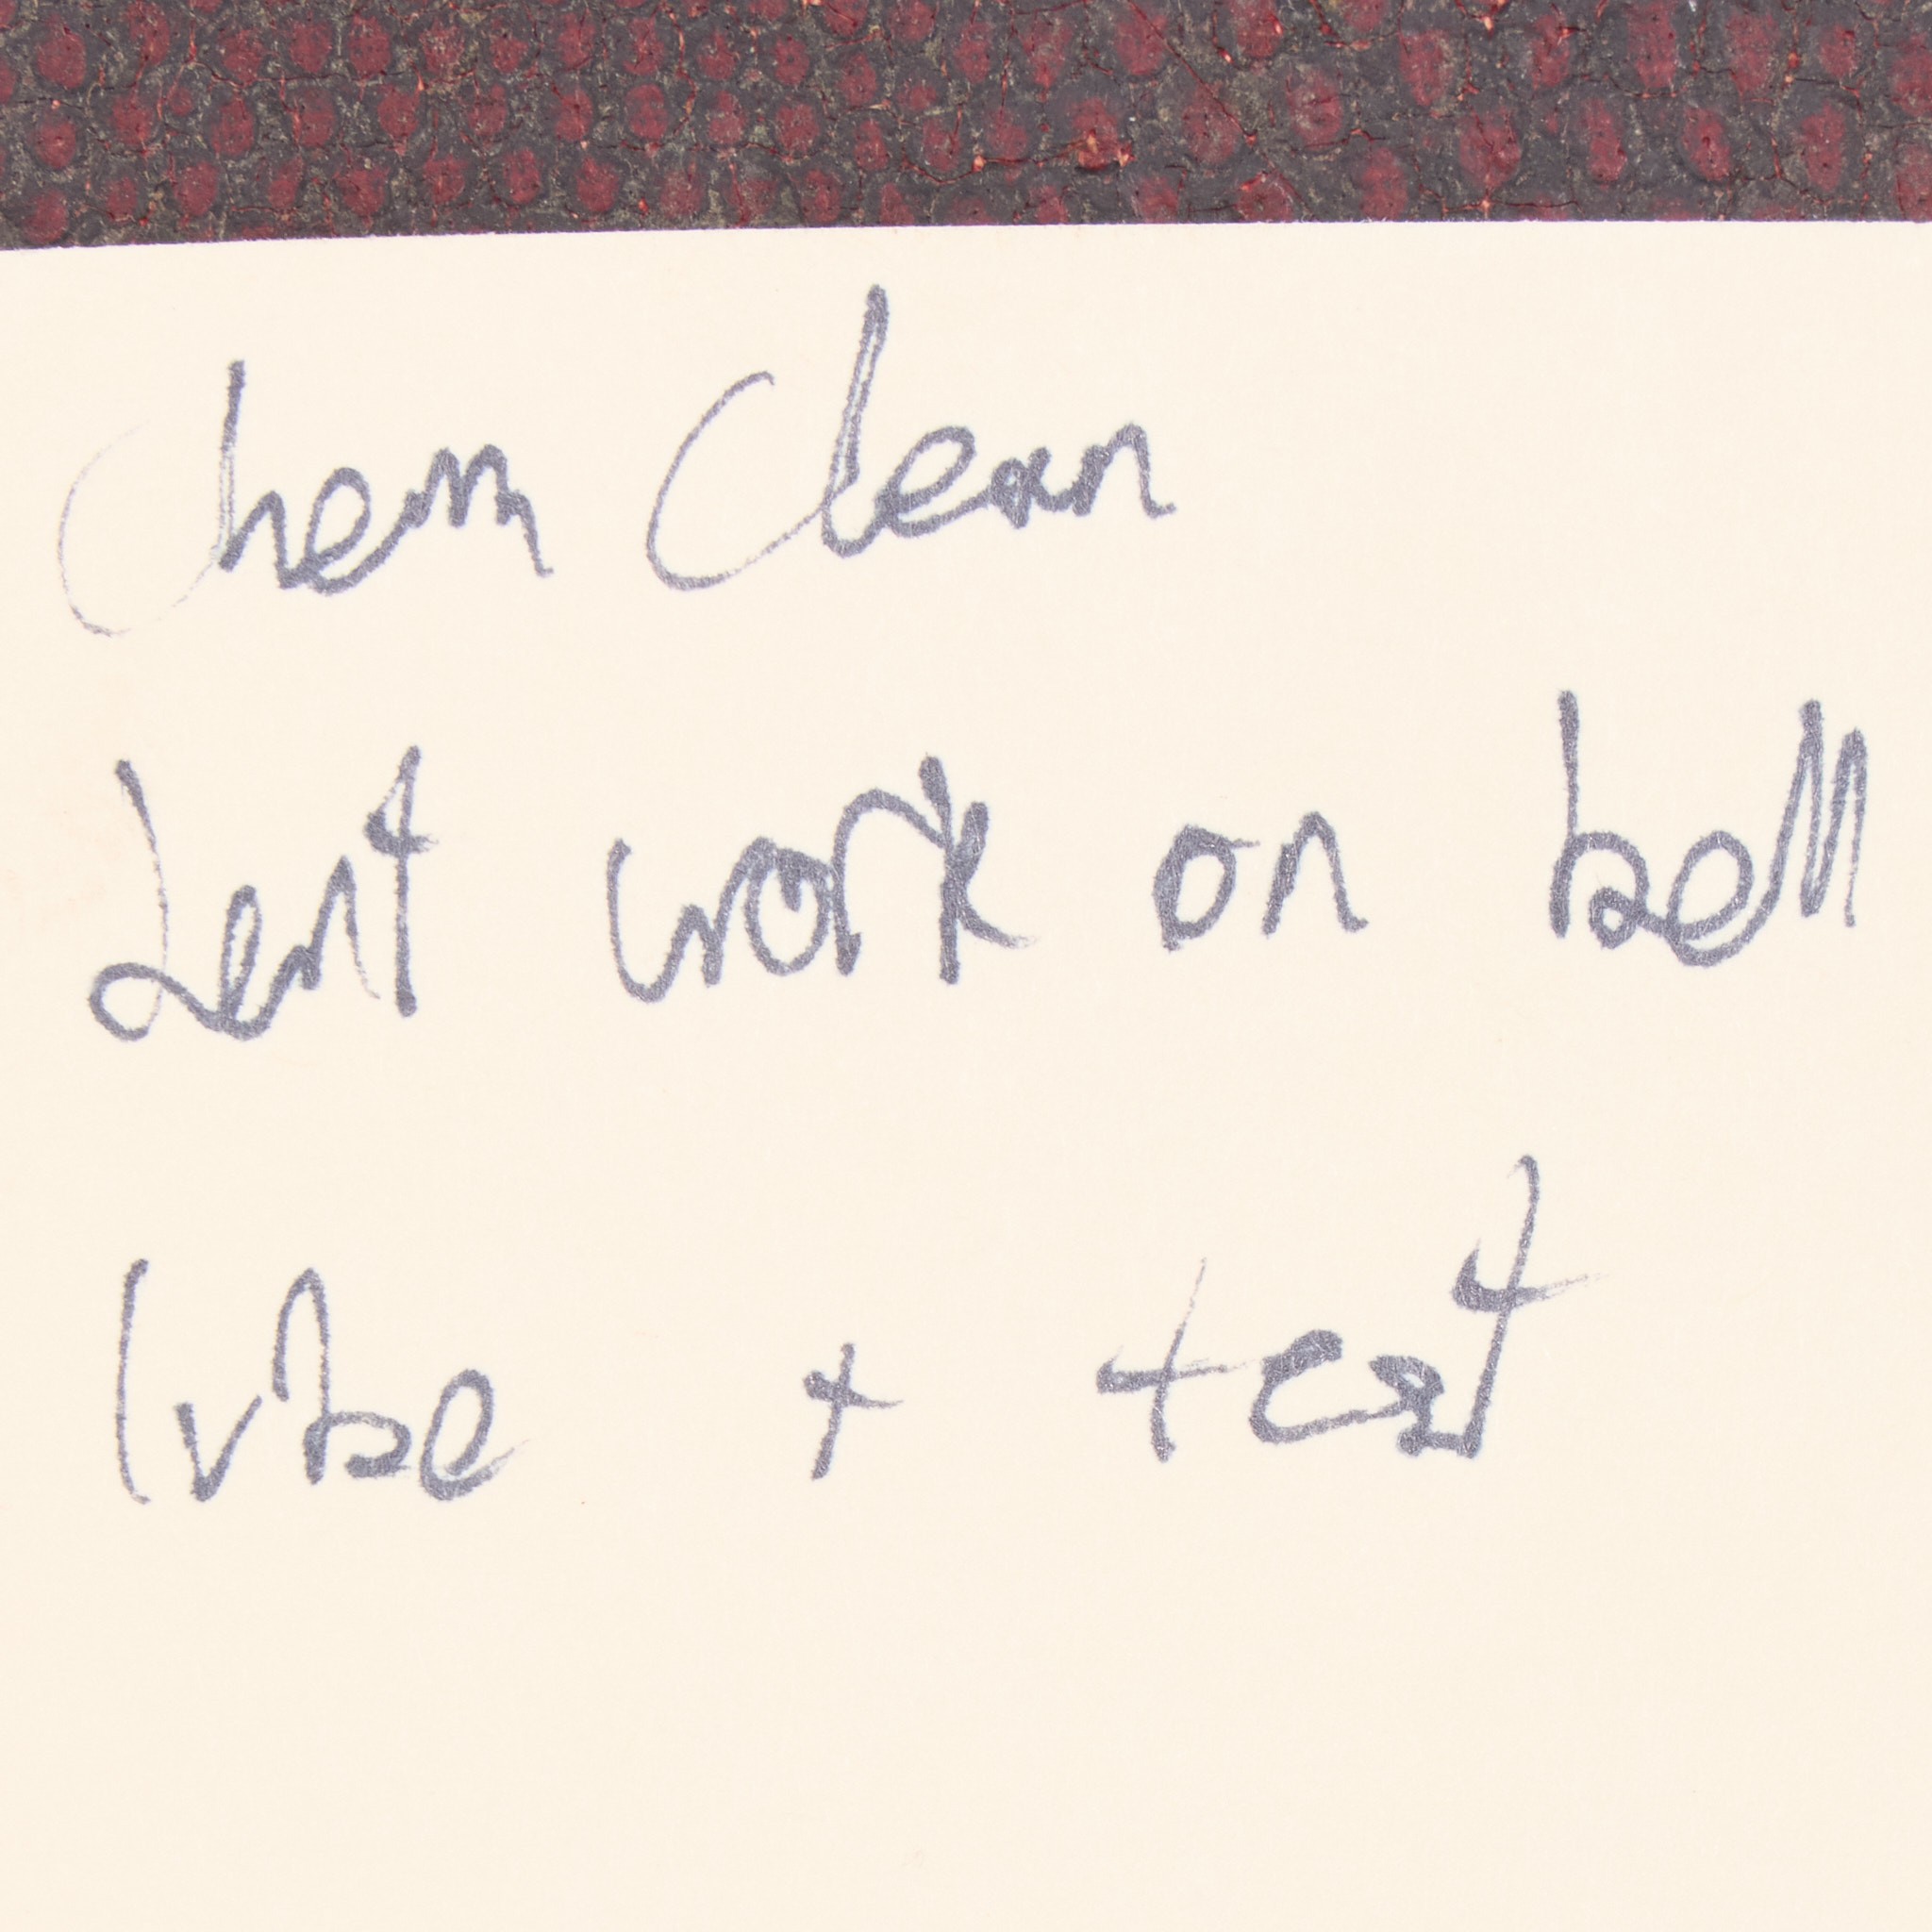 Chem Clean
dent work on bell
lube + test